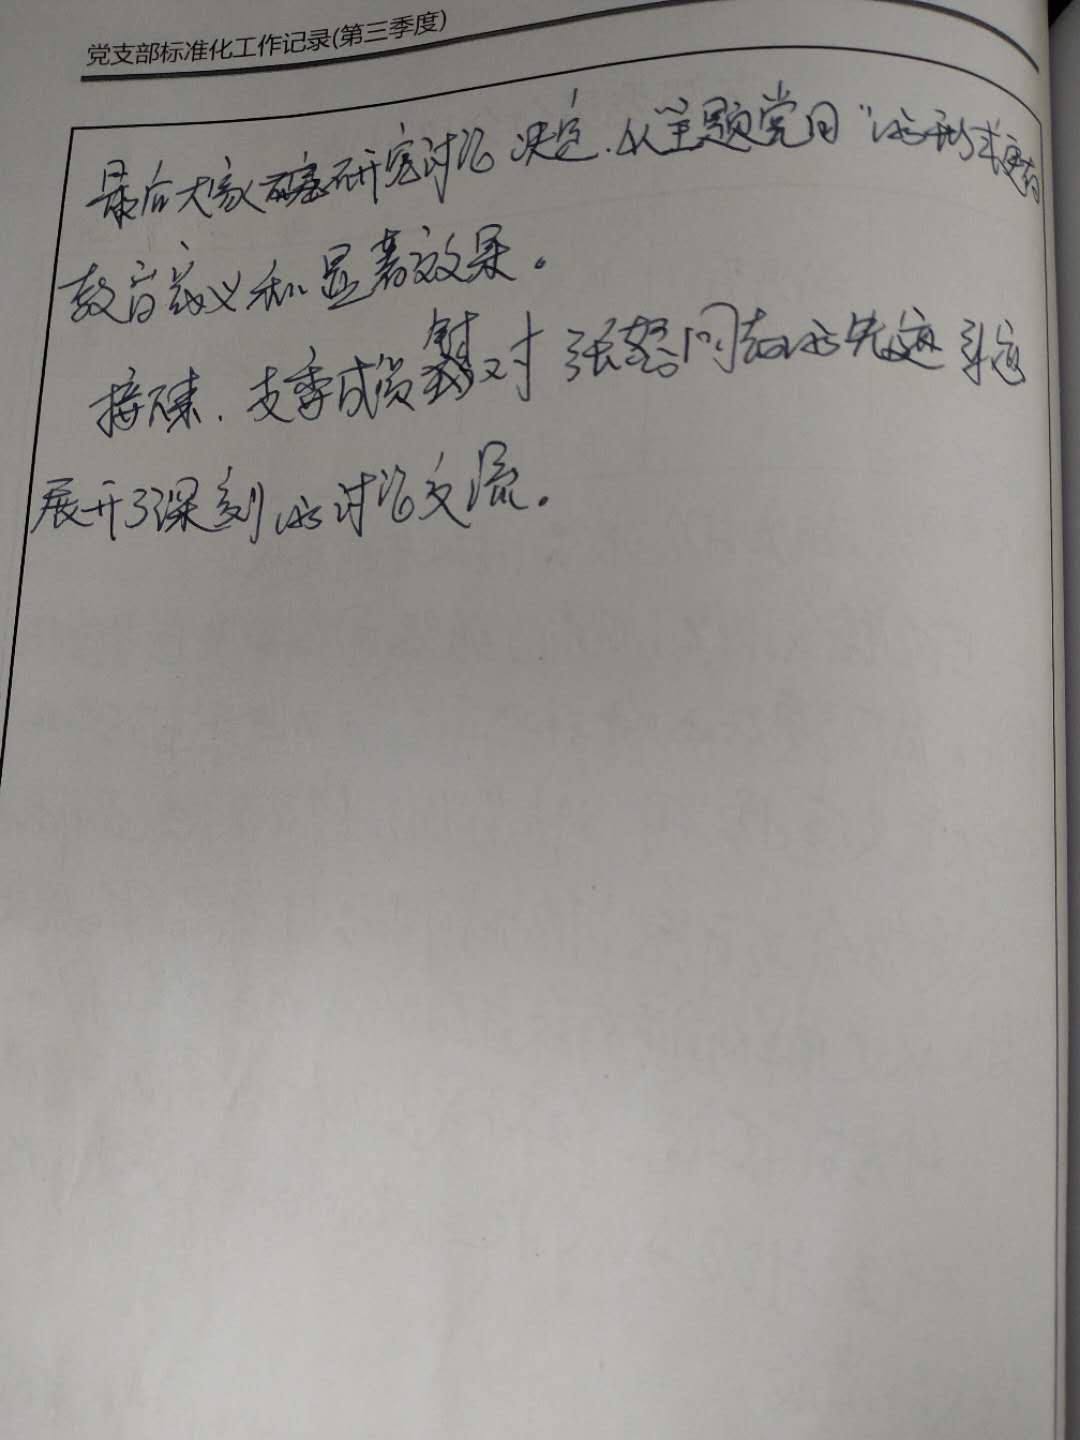 党支部标准化工作记录(第三季度)
最后大家研究讨论决定.以"主题党日"的形式更有
教育意义和显著效果。
接下来.支委成员针对张磊同志的先进事迹
展开了深刻的讨论交流。